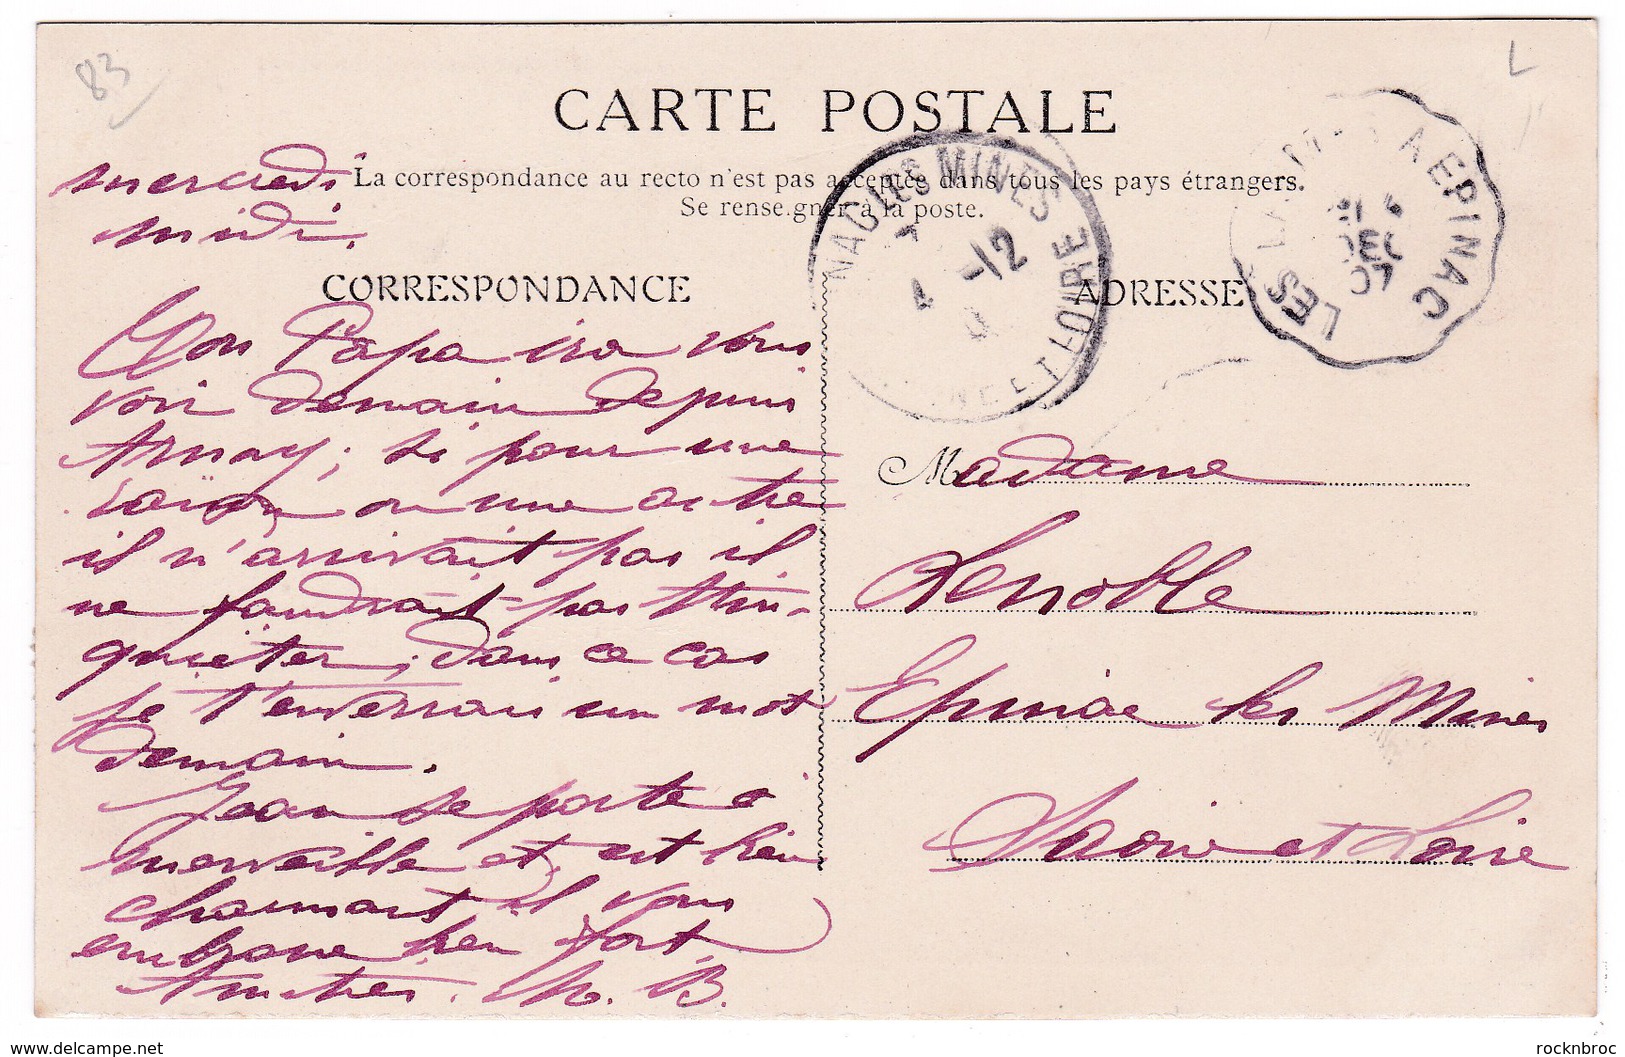 83
L
CARTE POSTALE
mercredi
midi.
La correspondance au recto n'est pas acceptée dans tous les pays étrangers.
Se renseigner à la poste.
NAC LES MINES
4 -12
ET LOIRE
LES LA A EPINAC
DEC
07
CORRESPONDANCE
ADRESSE
Ton Papa ira vous
voir demain depuis
Arnay; si pour une
raison ou une autre
il n'arrivait pas il
ne faudrait pas t'in-
quiéter; dans ce cas
je t'enverrais un mot
demain.
Jean se porte à
merveille et est bien
charmant il vous
embrasse bien fort,
Amitiés. M. B.
Madame
Lenoble
Epinac les Mines
Saone et Loire
delcampe.net
rocknbroc